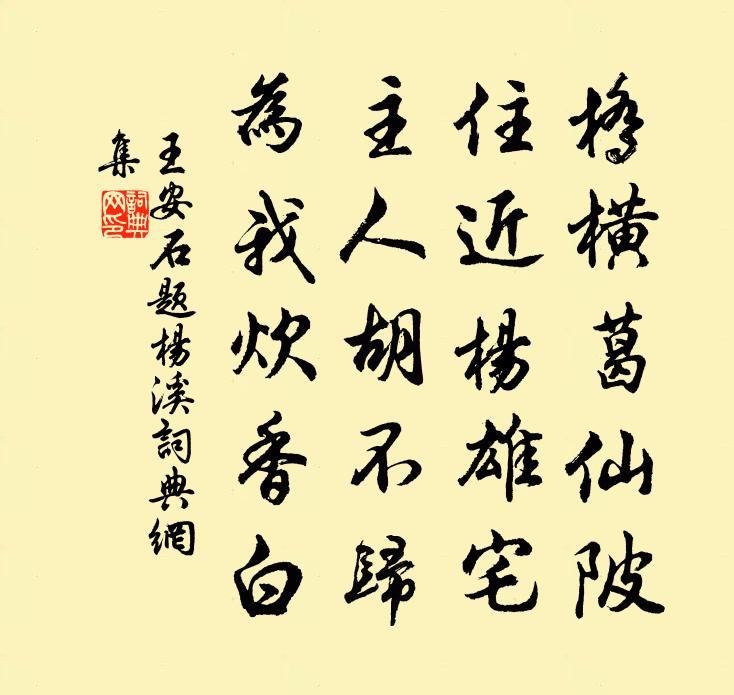 橋橫葛仙陂
住近楊雄宅
主人胡不歸
為我炊香白
王安石題楊溪詞典網
集
詞典
網印